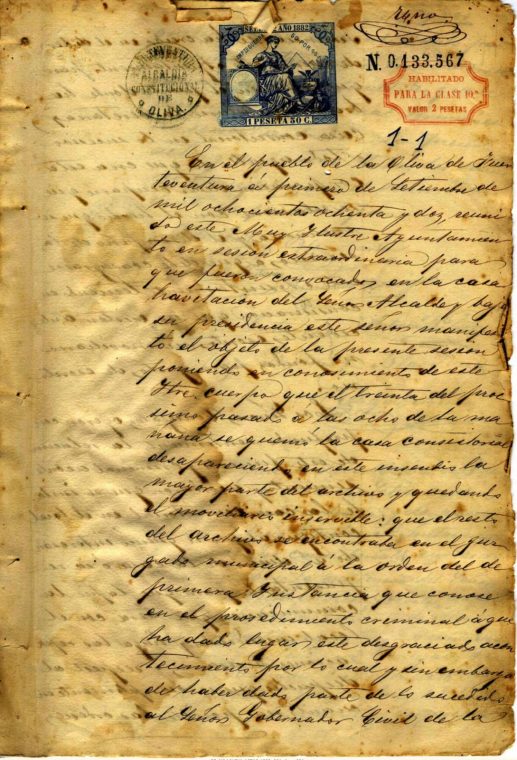 SELLO 10º AÑO 1882
1 PESETA 50 C.
ALCALDIA
CONSTITUCIONAL
DE
OLIVA.
N. 0.133.567
HABILITADO
PARA LA CLASE 10ª
VALOR 2 PESETAS
1-1
En el pueblo de la Oliva de Fuer
teventura á primero de Setiembre de
mil ochocientos ochenta y dos, reuni
do este Muy Ilustre Ayuntamien
to en sesion extraordinaria para
que fueron convocados en la casa
havitacion del Señor Alcalde y bajo
su presidencia este señor manifes
tó el objeto de la presente sesion
poniendo en conosimiento de este
Iltre. cuerpo que el treinta del proc
simo pasado a las ocho de la ma
ñana se quemó la casa consistorial
desapareciendo en este insendio la
mayor parte del archivo y quedando
el moviliario inservible: que el resto
del archivo se encontraba en el juz
gado municipal á la orden del de
primera Instancia que conose
en el prosedimiento creminal á que
ha dado lugar este desgraciado acon
tecimiento por lo cual y sin embargo
de haber dado parte de lo sucedido
al Señor Gobernador Civil de la